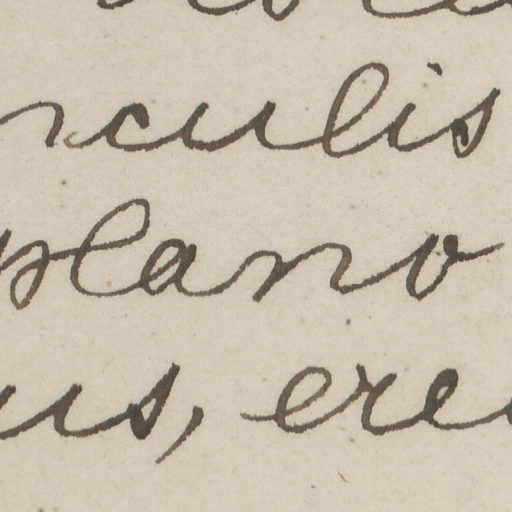 rculis
plano
us, ere